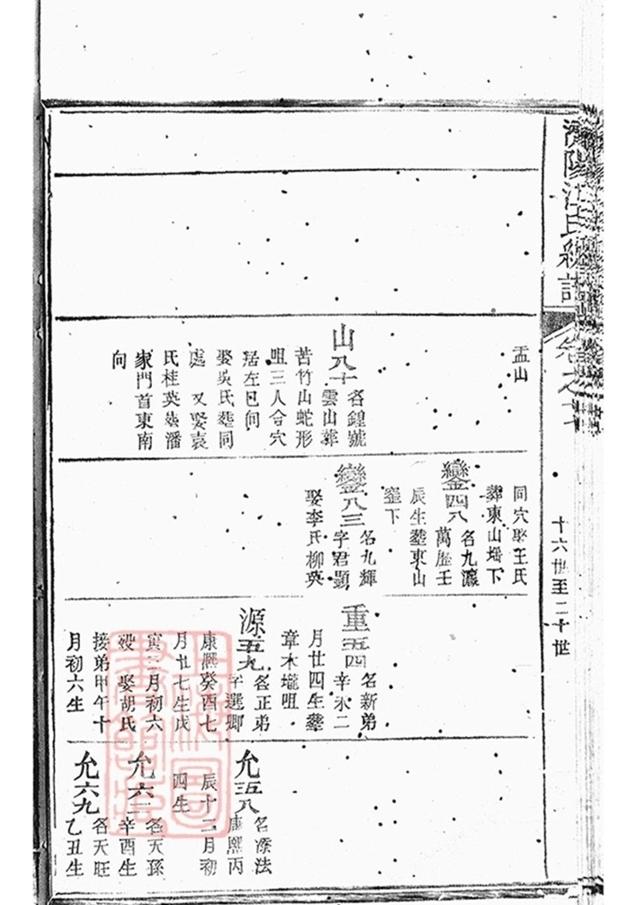 濟陽江氏總譜
卷之十
十六世至二十世
盂山
山八十
名鍠號
雲山葬
苦竹山蛇形
咀三人合穴
居左巳向
娶吳氏塟同
處 又娶袁
氏桂英塟潘
家門首東南
向
同穴娶王氏
葬東山塆下
鑾四八
名九瀛
萬曆壬
辰生塟東山
塋下
鑾八三
名九輝
字君顯
娶李氏柳英
重五四
名新弟
辛未二
月廿四生塟
章木壠咀
源五九
名正弟
字選卿
康熙癸酉七
月廿七生戊
寅二月初六
歿 娶胡氏
接弟甲午十
月初六生
允五八
名添法
康熙丙
辰十二月初
四生
允六一
名天孫
辛酉生
允六九
名天旺
乙丑生